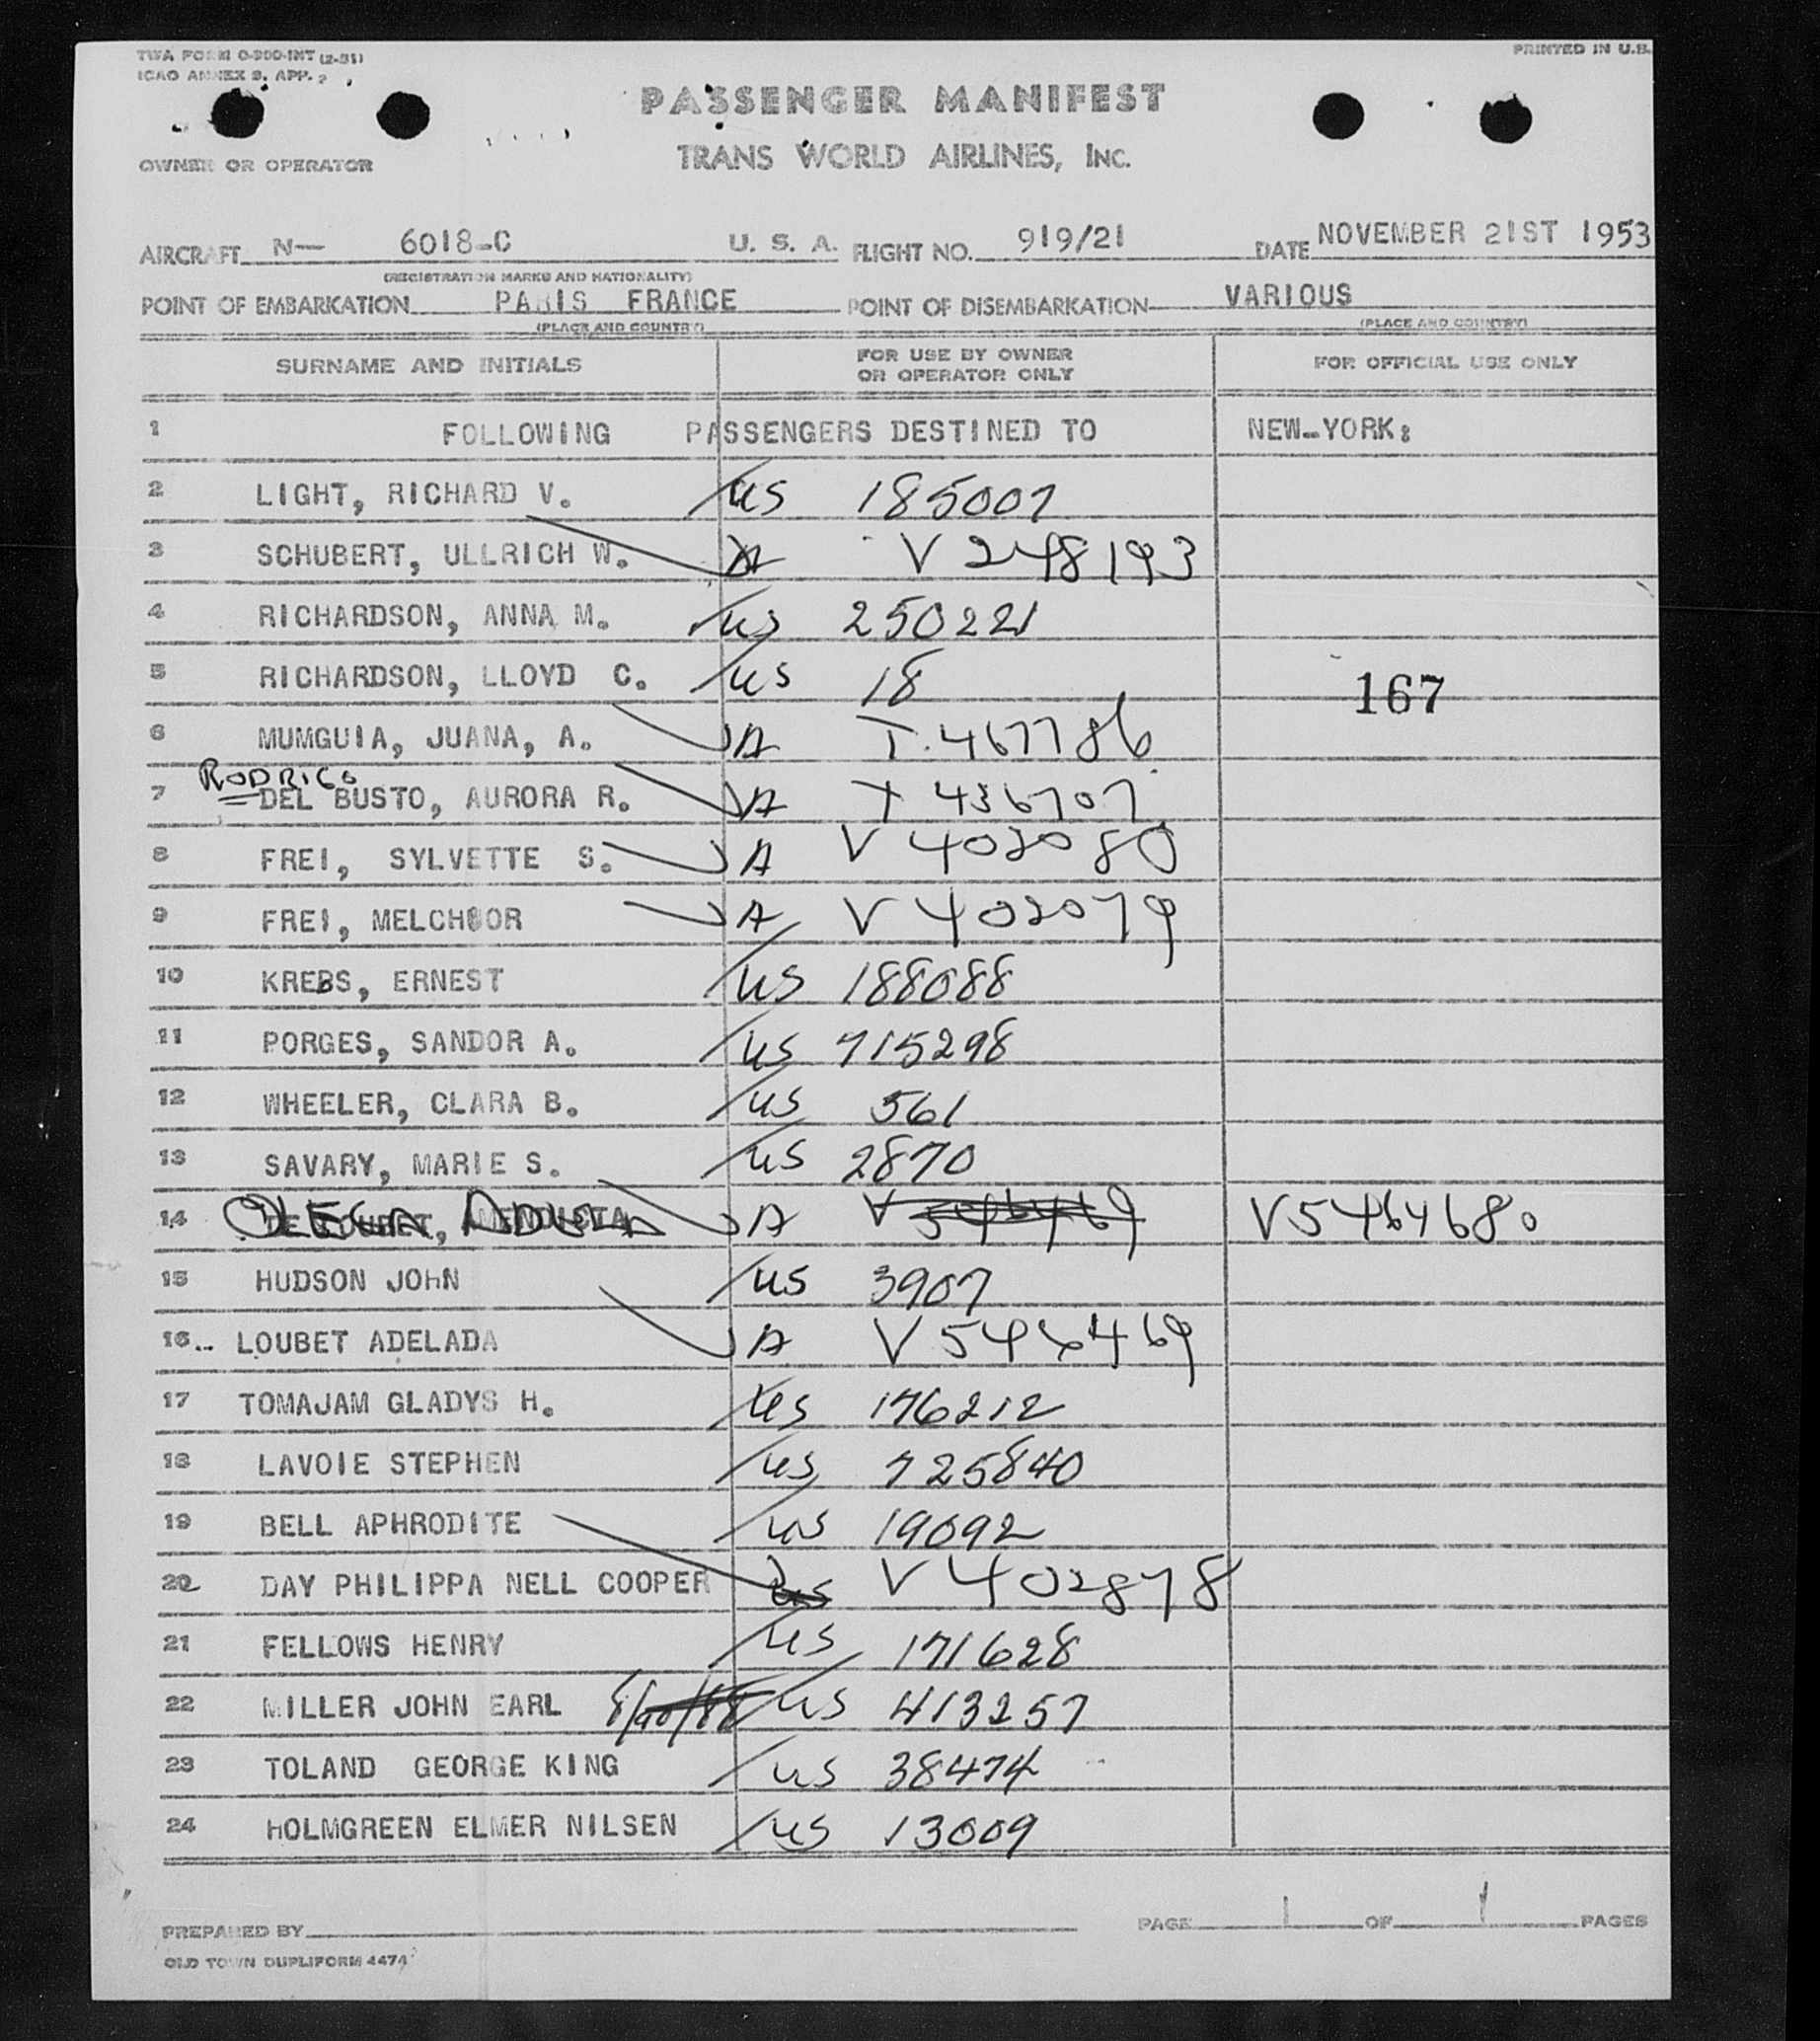 TWA FORM O-300-INT (2-51)
ICAO ANNEX 9, APP. 2
PRINTED IN U.S.
PASSENGER MANIFEST
OWNER OR OPERATOR
TRANS WORLD AIRLINES, INC.
AIRCRAFT N— 6018-C U. S. A. FLIGHT NO. 919/21 DATE NOVEMBER 21ST 1953
(REGISTRATION MARKS AND NATIONALITY)
POINT OF EMBARKATION PARIS FRANCE POINT OF DISEMBARKATION VARIOUS
(PLACE AND COUNTRY) (PLACE AND COUNTRY)
SURNAME AND INITIALS FOR USE BY OWNER OR OPERATOR ONLY FOR OFFICIAL USE ONLY
1 FOLLOWING PASSENGERS DESTINED TO NEW-YORK:
2 LIGHT, RICHARD V. US 185007
3 SCHUBERT, ULLRICH W. A V 248193
4 RICHARDSON, ANNA M. US 250221
5 RICHARDSON, LLOYD C. US 18
167
6 MUMGUIA, JUANA, A. A T. 467786
RODRIGO
7 DEL BUSTO, AURORA R. A T 436707
8 FREI, SYLVETTE S. A V 402080
9 FREI, MELCHOOR A V 402079
10 KREBS, ERNEST US 188088
11 PORGES, SANDOR A. US 715298
12 WHEELER, CLARA B. US 561
13 SAVARY, MARIE S. US 2870
14 A V 546469 V5464680
15 HUDSON JOHN US 3907
16.. LOUBET ADELADA A V 546469
17 TOMAJAM GLADYS H. US 176212
18 LAVOIE STEPHEN US 725840
19 BELL APHRODITE US 19092
20 DAY PHILIPPA NELL COOPER US V 402878
21 FELLOWS HENRY US 171628
22 MILLER JOHN EARL US 413257
23 TOLAND GEORGE KING US 38474
24 HOLMGREEN ELMER NILSEN US 13009
PREPARED BY PAGE 1 OF 1 PAGES
OLD TOWN DUPLIFORM 4474